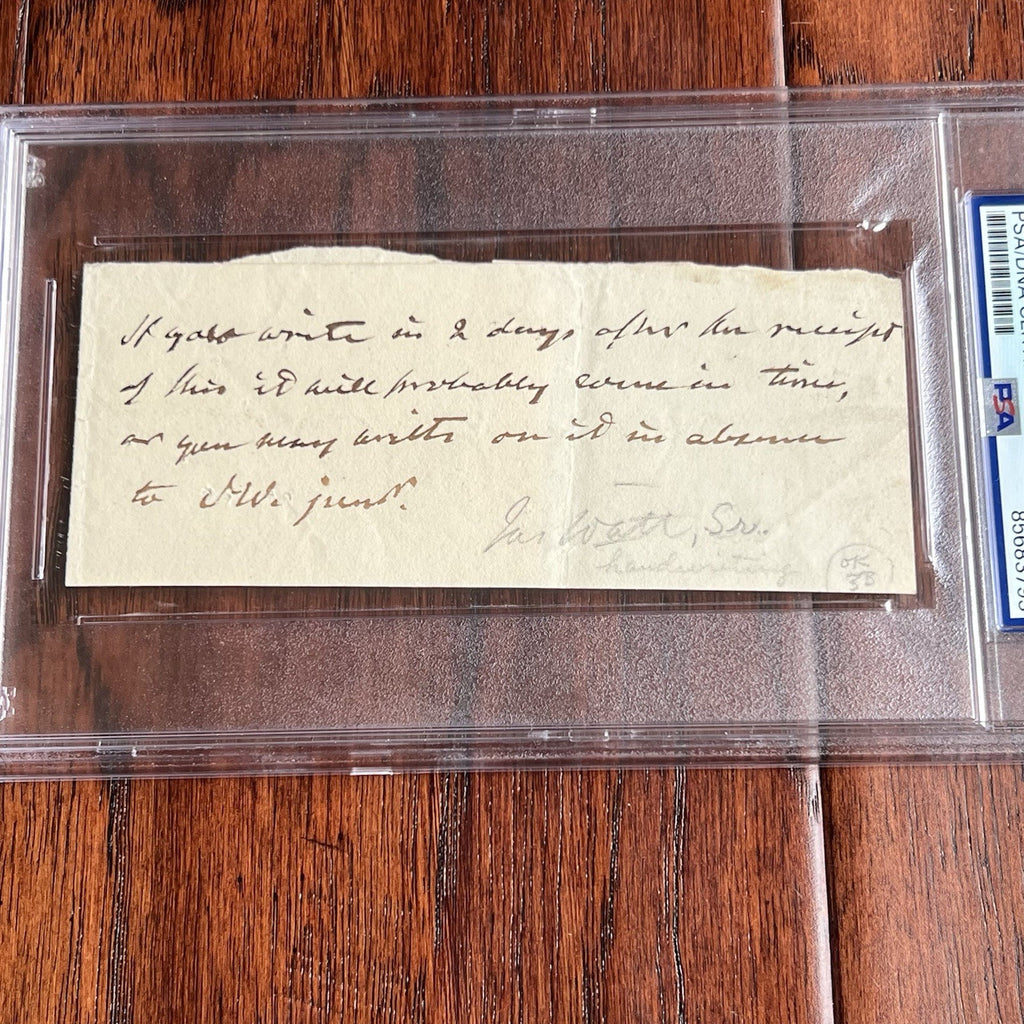 If you write in 2 days after the receipt
of this it will probably come in time,
or you may write on it in absence
to J.W. junr.
Jas Watt, Sr.
handwriting
OK
3B
PSA/DNA CER
PSA
85683793